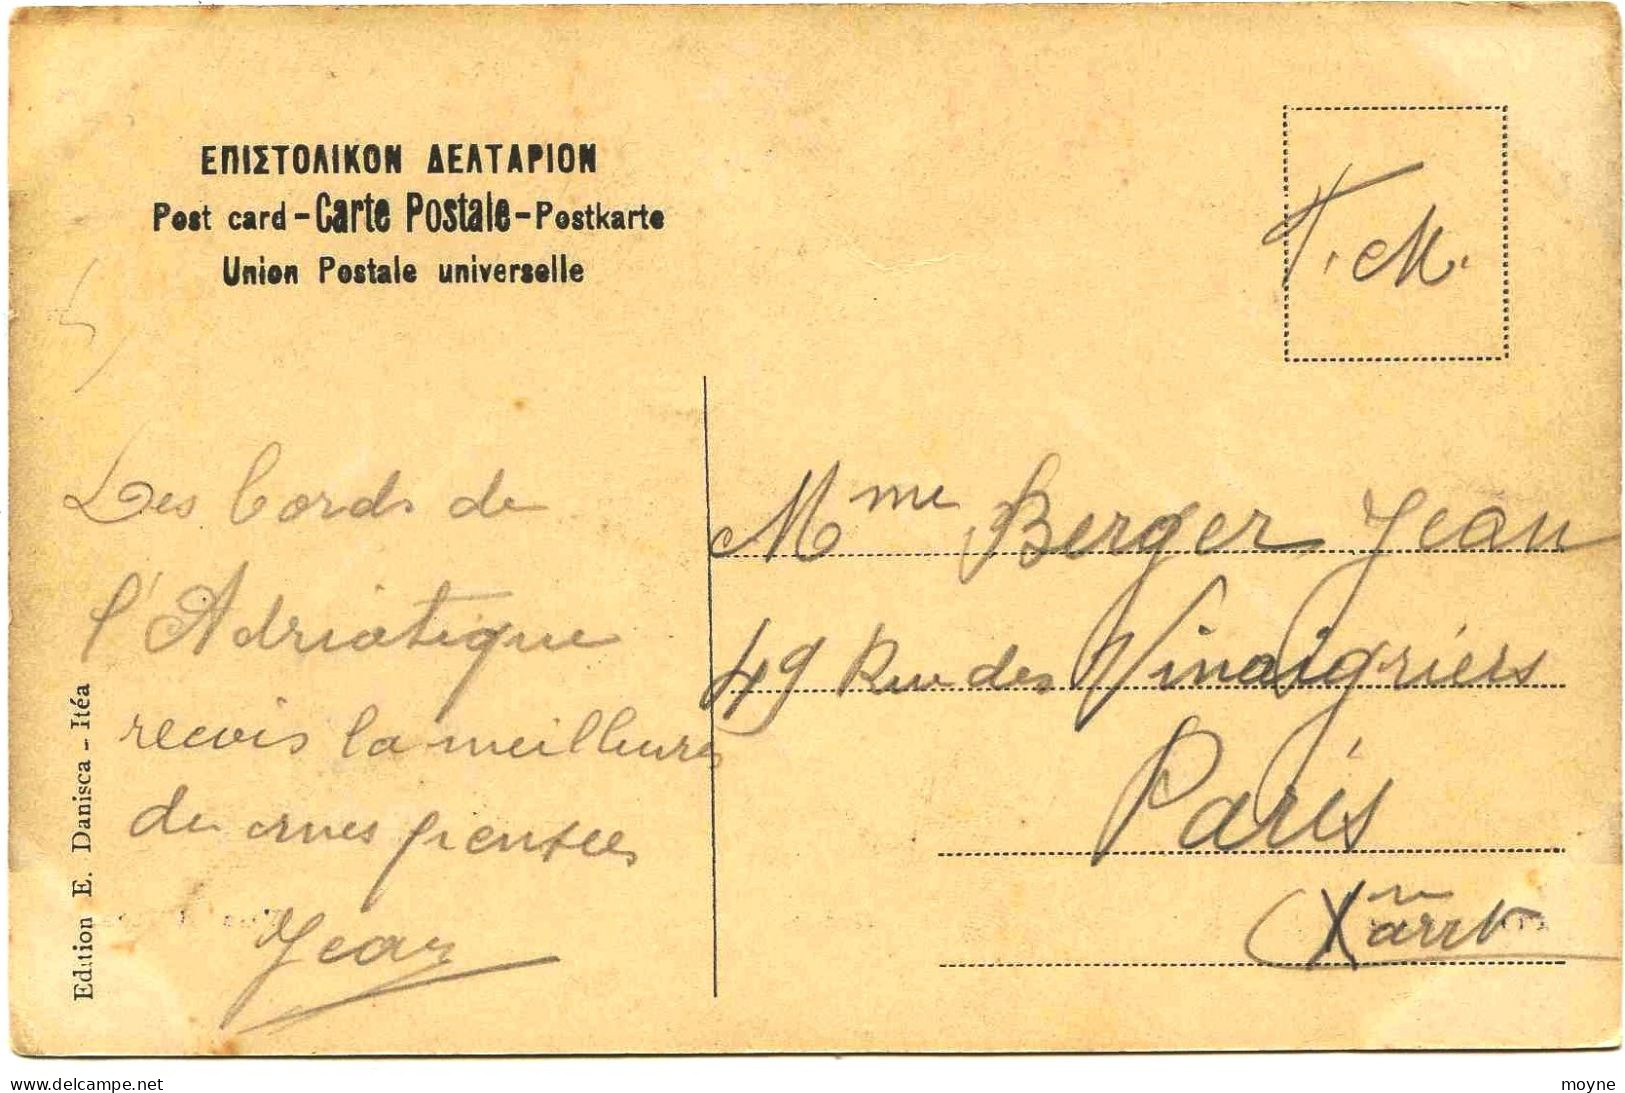 ΕΠΙΣΤΟΛΙΚΟΝ ΔΕΛΤΑΡΙΟΝ
Post card - Carte Postale - Postkarte
Union Postale universelle
F. M.
Les bords de
l'Adriatique
recois la meilleures
de mes pensées
Jean
Edition E. Danisca - Itéa
Mme Berger Jean
49 Rue des Vinaigriers
Paris
X arrt
delcampe.net
moyne